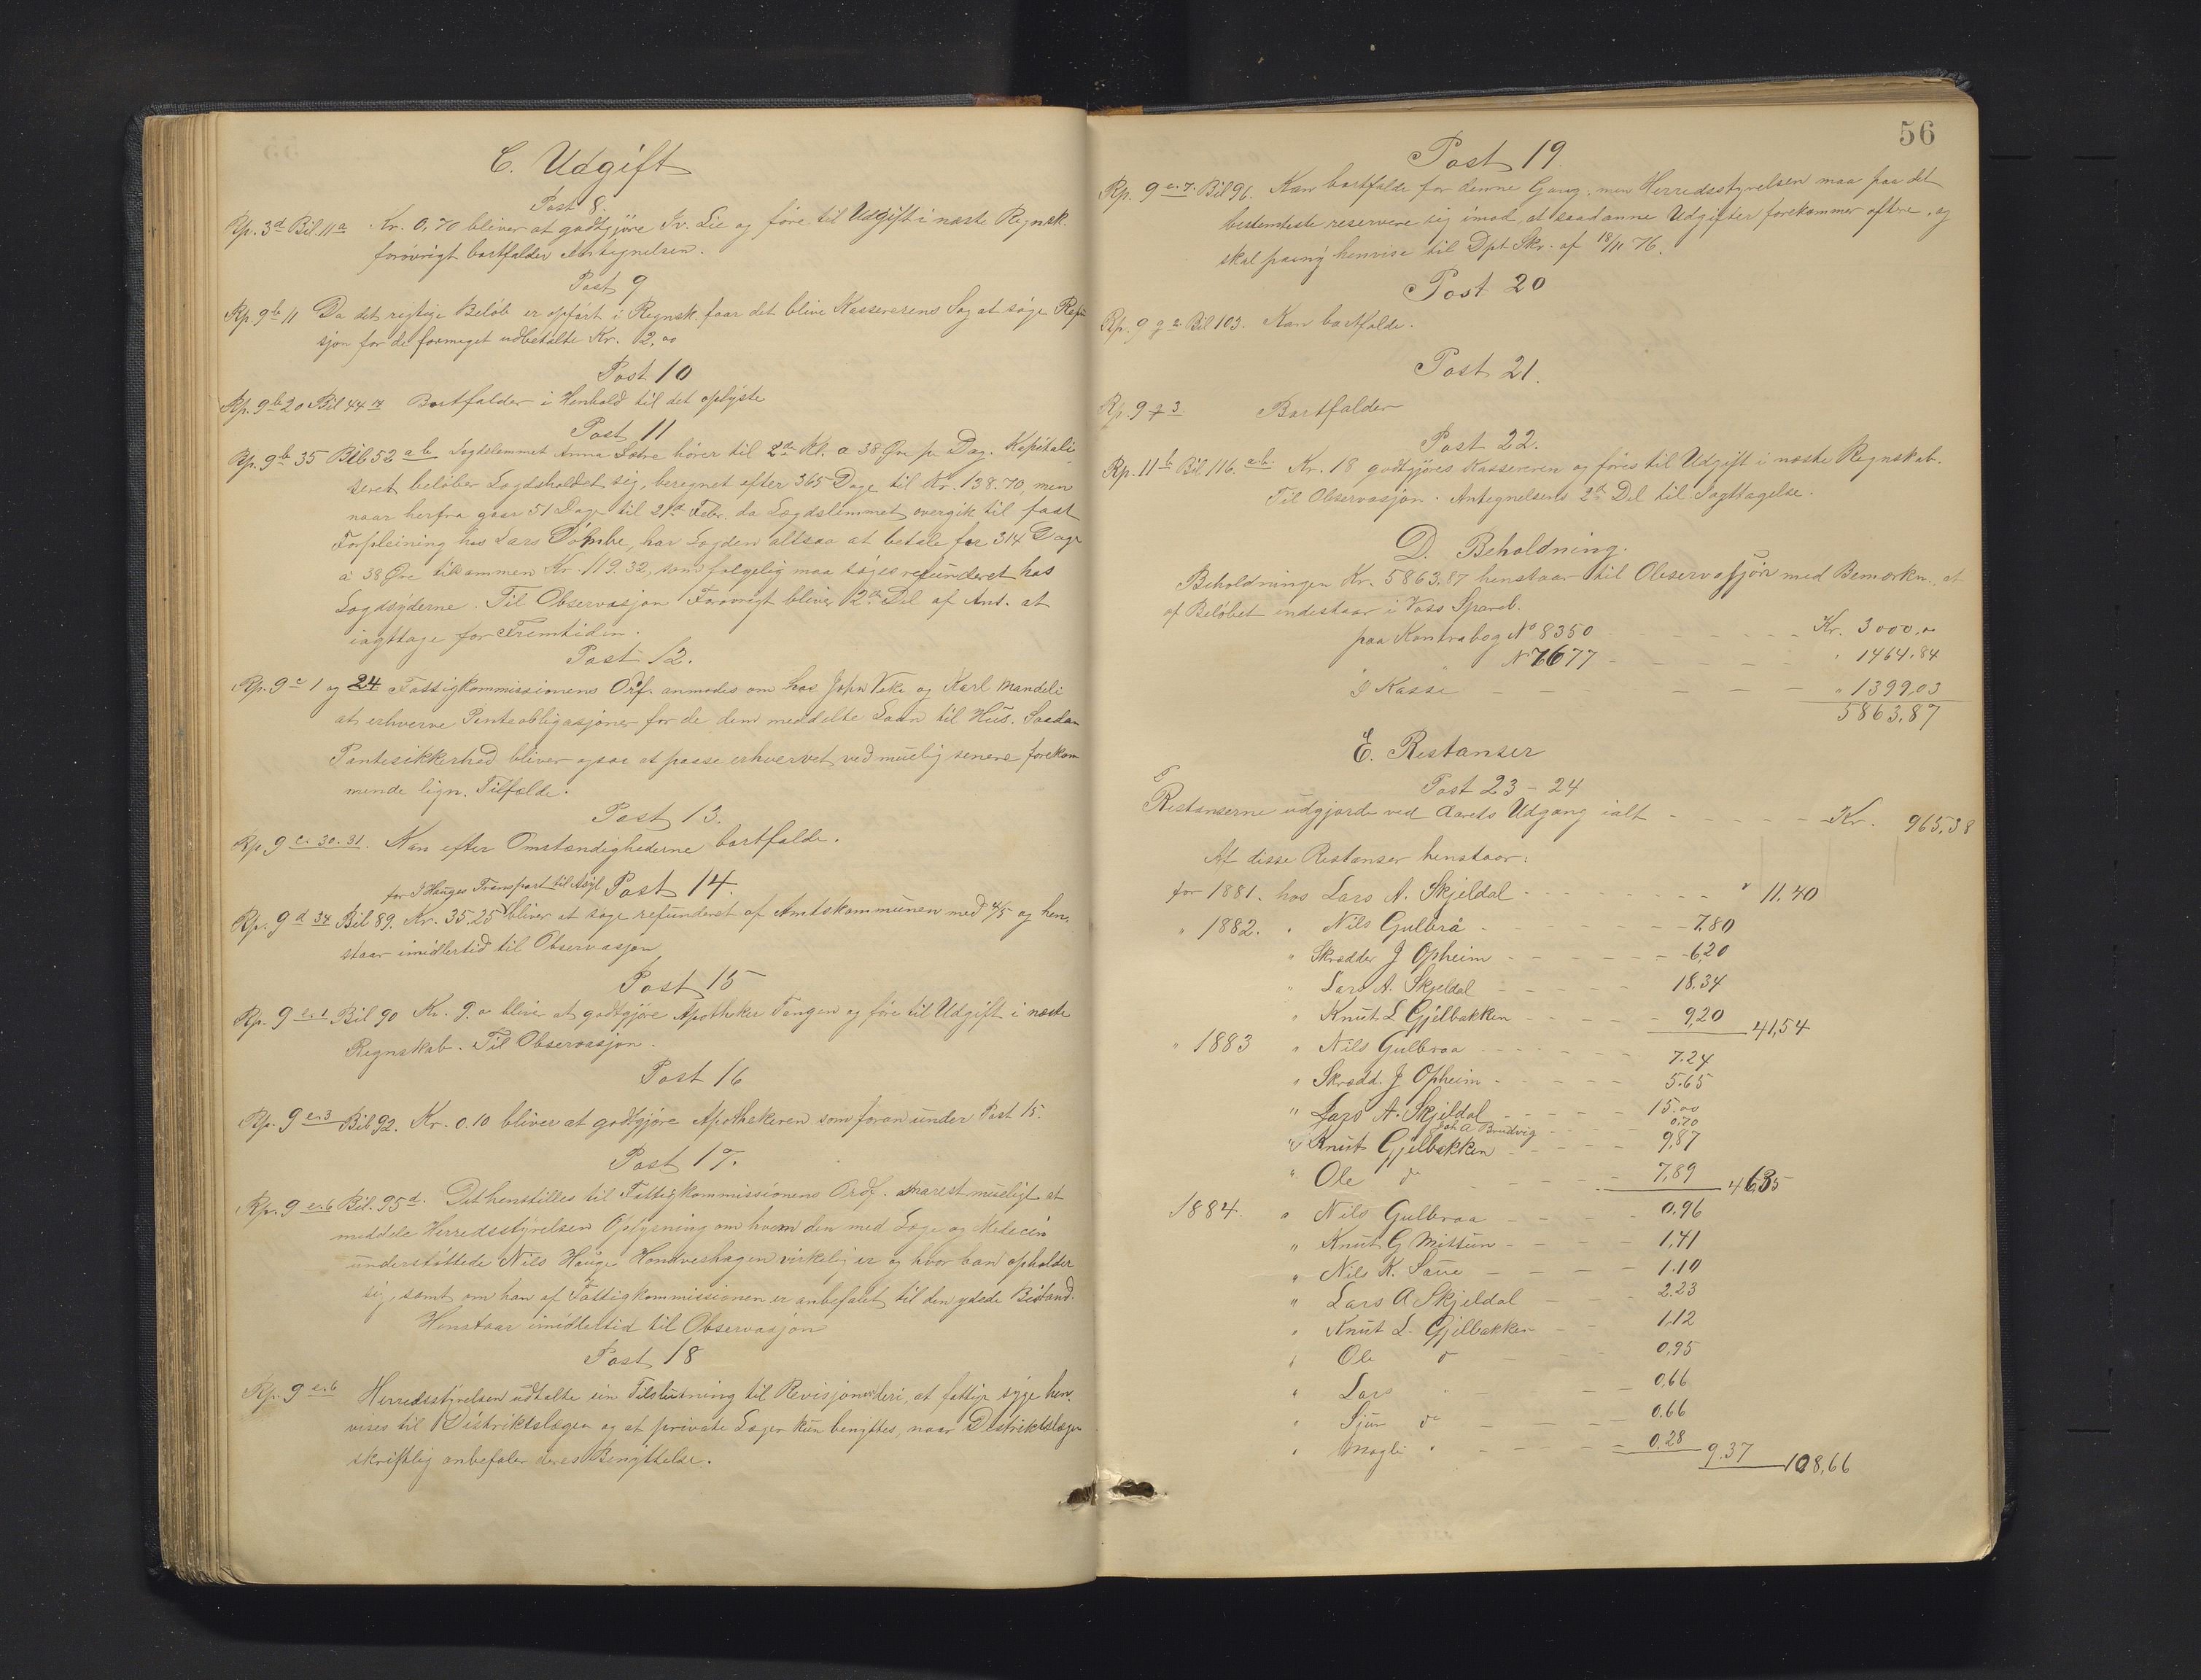 C. Udgift
Post 8.
Rp. 3d Bil 11a Kr. 0,70 bliver at godtgjöre Iv. Lie og före til Udgift i næste Regnsk.
forövrigt bortfalder Antegnelsen.
Post 9
Rp. 9b 11 Da det rigtige Belöb er opfört i Regnsk. faar det blive Kassererens Sag at söge Refu
sjon for de formeget udbetalte Kr. 2,00
Post 10
Rp. 9b 20 Bil 44 Bortfalder i Henhold til det oplyste
Post 11
Rp. 9b 35 Bil 52 a b Lægdslemmet Anna Sætre hörer til 2den Kl. a 38 Öre pr Dag. Kapitali
seret belöber Lægdsholdet sig, beregnet efter 365 Dage til Kr. 138.70, men
naar herfra gaar 51 Dage til 21d Febr. da Lægdslemmet overgik til fast
Forpleining hos Lars Dömbe, har Lægden altsaa at betale for 314 Dage
à 38 Öre tilsammen Kr. 119.32, som fölgelig maa söges refunderet hos
Lægdsyderne. Til Observasjon Forövrigt bliver 2den Del af Ant. at
iagttage for Fremtiden.
Post 12.
Rp. 9c 1 og 24 Fattigkommissionens Orf. anmodes om hos John Veka og Karl Mandeli
at erhverve Panteobligasjoner for de dem meddelte Laan til Hus. Saadan
Pantesikkerhed bliver ogsaa at paase erhvervet ved muelig senere forekom
mende lign. Tilfælde.
Post 13.
Rp. 9 c. 30. 31. Kan efter Omstændighederne bortfalde.
for J Hauges Transport til Asyl Post 14.
Rp. 9 d 34 Bil 89. Kr. 35.25 bliver at söge refunderet af Amtskommunen med 4/5 og hen
staar imidlertid til Observasjon
Post 15
Rp. 9 e.1 Bil 90 Kr. 9.00 bliver at godtgjöre Apotheker Tangen og före til Udgift i næste
Regnskab. Til Observasjon.
Post 16
Rp. 9 e.3 Bil 92. Kr. 0.10 bliver at godtgjöre Apothekeren som foran under Post 15.
Post 17.
Rp. 9 e.6 Bil. 95d. Det henstilles til Fattigkommissionens Ordf. snarest mueligt at
meddele Herredsstyrelsen Oplysning om hvem den med Læge og Medecin
understöttede Nils Hauge Handveshagen virkelig er og hvor han opholder
sig, samt om han af Fattigkommissionen er anbefalet til den ydede Bistand.
Henstaar imidlertid til Observasjon
Post 18
Rp. 9 e.6 Herredsstyrelsen udtalte sin Tilslutning til Revisjonens deri, at fattige syge hen
vises til Distriktslægen og at private Læger kun benyttes, naar Distriktslægen
skriftlig anbefaler deres Benyttelse.
56
Post 19.
Rp. 9 e.7. Bil 96. Kan bortfalde for denne Gang, men Herredsstyrelsen maa paa det
bestemteste reservere sig imod at saadanne Udgifter forekommer oftere, og
skal paany henvise til Dpt Skr. af 18/11.76.
Post 20
Rp. 9 g 2 Bil 103. Kan bortfalde.
Post 21.
Rp. 9 g 3 Bortfalder
Post 22.
Rp. 11b Bil. 116. a b. Kr. 18 godtgjöres Kassereren og föres til Udgift i næste Regnskab.
Til Observasjon. Antegnelsens 2d Del til Iagttagelse.
D. Beholdning.
Beholdningen Kr. 5863.87 henstaar til Observasjon med Bemærkn. at
af Belöbet indestaar i Voss Spareb.
paa Kontrabog No 8350 Kr. 3000,00
" No 7677 " 1464.84
I Kasse " 1399,03
5863.87
E. Restanser
Post 23 - 24
Restanserne udgjorde ved Aarets Udgang ialt Kr. 965,38
Af disse Restanser henstaar:
for 1881. hos Lars A. Skjeldal " 11.40
" 1882. " Nils Gulbrå 7.80
" Skrædder J Opheim 6,20
" Lars A. Skjeldal 18.34
" Knut L Gjelbakken 9,20 41,54
" 1883 " Nils Gulbraa 7.24
" Skrædd. J Opheim 5.65
" Lars A. Skjeldal 15.00
Joh A Brudvig 0.70
" Knut Gjelbakken 9,87
" Ole do 7,89 46,35
1884. " Nils Gulbraa 0.96
" Knut G Mittun 1,41
" Nils K. Saue 1.10
" Lars A Skjeldal 2.23
" Knut L. Gjelbakken 1.12
" Ole do 0,95
" Lars " 0.66
" Sjur do 0.66
" Magli " 0.28 9.37 108,66